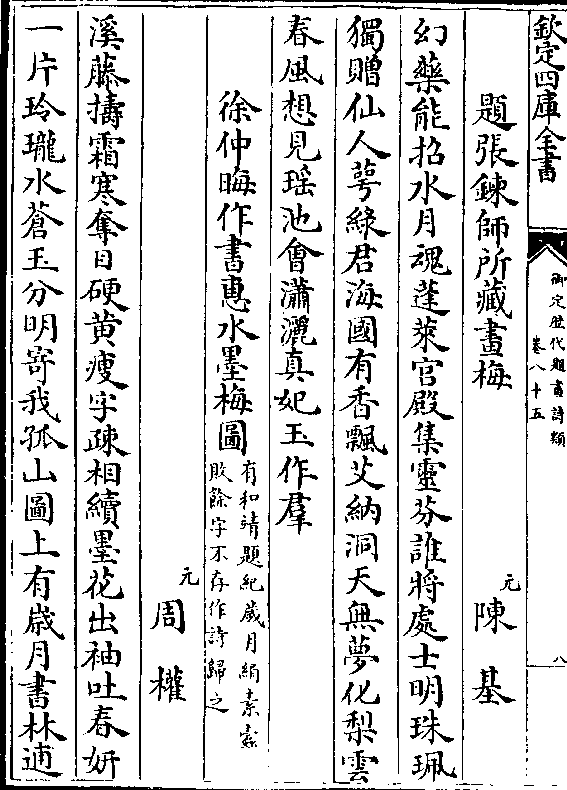 欽定四庫全書
御定歴代題畫詩類
卷八十五
八
題張鍊師所藏畫梅
元 陳基
幻藥能招水月魂蓬萊宮殿集靈芬誰將處士明珠珮
獨贈仙人萼緑君海國有香飄艾納洞天無夢化梨雲
春風想見瑶池會瀟灑真妃玉作羣
徐仲晦作書惠水墨梅圖
有和靖題紀歲月絹素蠧
敗餘字不存作詩歸之
元 周權
溪藤擣霜寒奪目硬黄瘦字疎相續墨花出袖吐春妍
一片玲瓏水蒼玉分明寄我孤山圖上有歲月書林逋